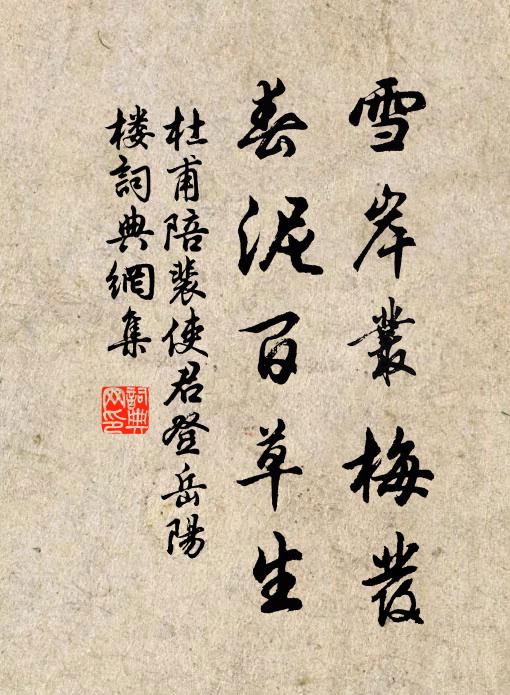 雪岸叢梅發
春泥百草生
杜甫陪裴使君登岳陽
楼詞典網集
詞典
网印